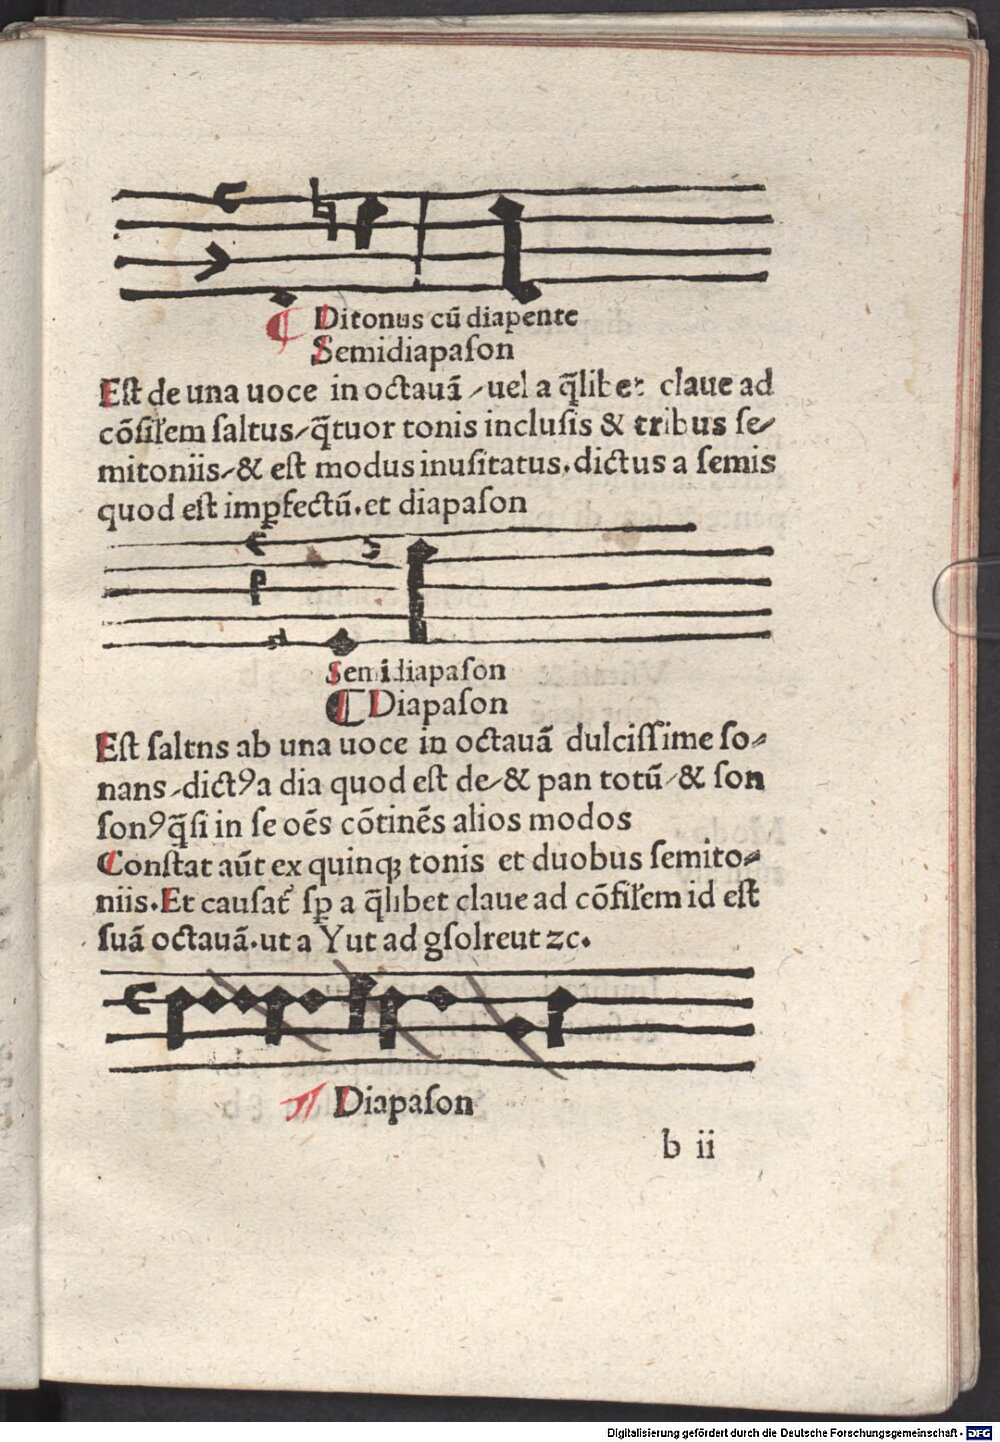 Ditonus cū diapente
Semidiapaſon
Eſt de una uoce in octauā ⸝uel a q̄libet claue ad
cōſiłem ſaltus⸝q̄tuor tonis incluſis & tribus ſe⸗
mitoniis⸝& eſt modus inuſitatus.dictus a ſemis
quod eſt imꝑfectū.et diapaſon
Semidiapaſon
¶ Diapaſon
Eſt ſaltns ab una uoce in octauā dulciſſime ſo⸗
nans⸝dictꝰa dia quod eſt de⸝& pan totū⸝& ſon
ſonꝰq̄ſi in ſe oēs cōtinēs alios modos
Conſtat aūt ex quinqꝫ tonis et duobus ſemito⸗
niis.Et cauſat᷑ ſꝑ a q̄libet claue ad cōſiłem id eſt
ſuā octauā.ut a Yut ad gſolreut ꝛc.
Diapaſon
b ii
Digitalisierung gefördert durch die Deutsche Forschungsgemeinschaft - DFG